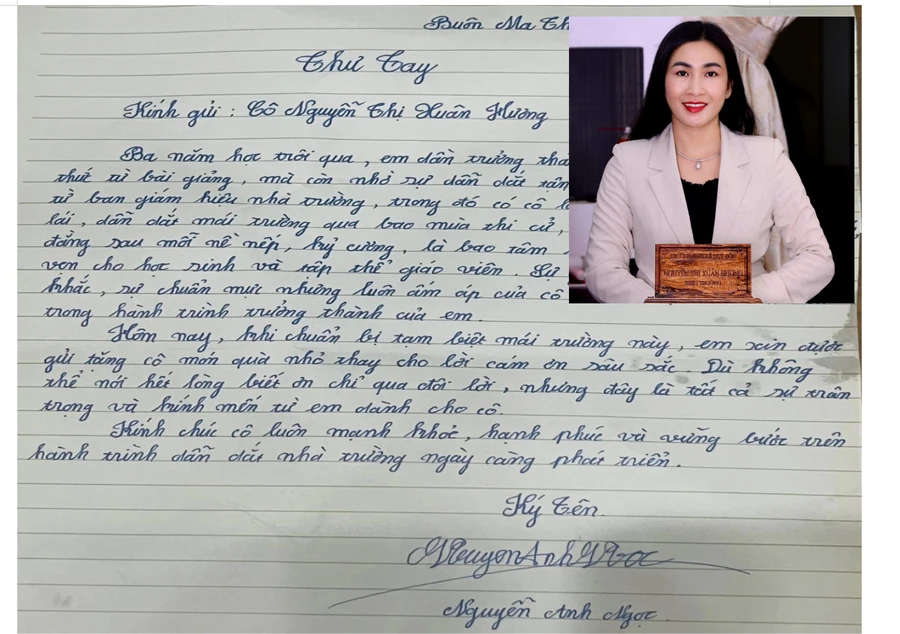 Buôn Ma
Thư Tay
Kính gửi : Cô Nguyễn Thị Xuân Hương
Ba năm học trôi qua, em dần trưởng
thứ từ bài giảng, mà còn nhờ sự dẫn dắt
từ ban giám hiệu nhà trường, trong đó có cô
lái, dẫn dắt mái trường qua bao mùa thi cử,
đằng sau mỗi nề nếp, kỷ cương, là bao tâm
vọn cho học sinh và tập thể giáo viên. Sự
khắc, sự chuẩn mực nhưng luôn ấm áp của cô
trong hành trình trưởng thành của em.
Hôm nay, khi chuẩn bị tạm biệt mái trường này, em xin được
gửi tặng cô món quà nhỏ thay cho lời cám ơn sâu sắc. Dù không
thể nói hết lòng biết ơn chỉ qua đôi lời, nhưng đây là tất cả sự trân
trọng và kính mến từ em dành cho cô.
Kính chúc cô luôn mạnh khỏe, hạnh phúc và vững bước trên
hành trình dẫn dắt nhà trường ngày càng phát triển.
Ký Tên.
NguyenAnhNgoc
Nguyễn Anh Ngọc